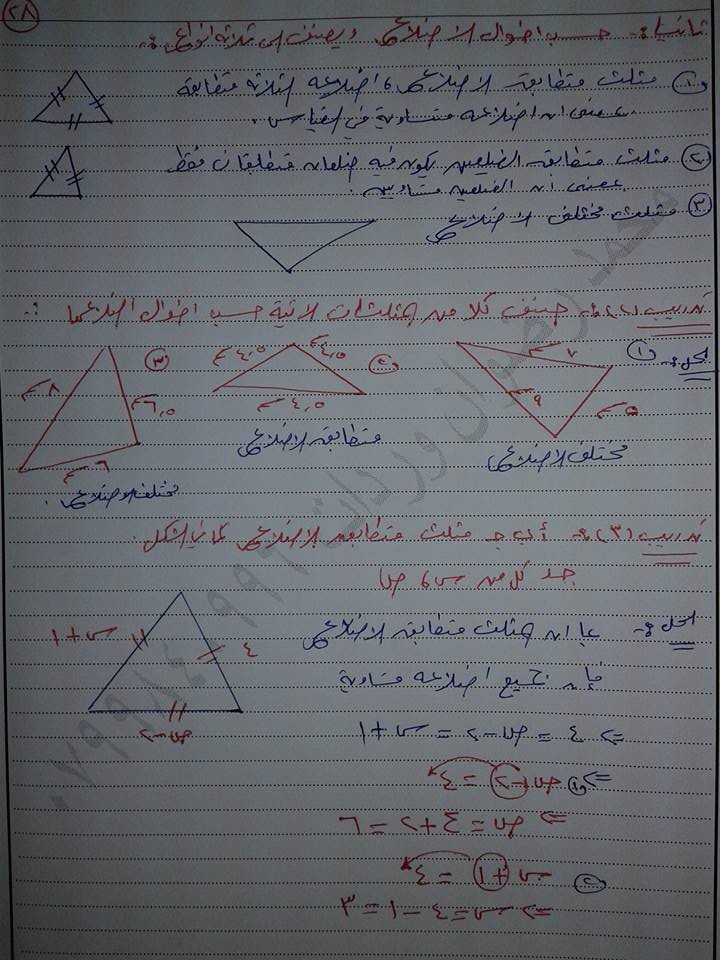 ٢٨
ثانياً :- حسب اطوال الاضلاع ويصنف الى ثلاثة انواع :-
١) مثلث متطابق الاضلاع ، اضلاعه الثلاثة متطابقة
بمعنى ان اضلاعه متساوية في القياس .
٢) مثلث متطابق الضلعين يكون فيه ضلعان متطابقان فقط
بمعنى ان الضلعين متساويين .
٣) مثلث مختلف الاضلاع
تدريب (٢) :- صنف كلا من المثلثات الاتية حسب اطوال اضلاعها :-
الحل :-
١)
٧ سم
٩ سم
٥ سم
مختلف الاضلاع
٢)
٤,٥ سم
٤,٥ سم
٤,٥ سم
متطابق الاضلاع
٣)
٨ سم
٦,٥ سم
٦ سم
مختلف الاضلاع .
تدريب (٣) :- أ ب جـ مثلث متطابق الاضلاع كما في الشكل
جد كل من س ، ص
الحل :- بما ان المثلث متطابق الاضلاع
فإن جميع اضلاعه متساوية
س + ١
٤
ص - ٢
=> ٤ = ص - ٢ = س + ١
=> ١) ص - ٢ = ٤
=> ص = ٤ + ٢ = ٦
٢) س + ١ = ٤
=> س = ٤ - ١ = ٣
محمد رضوان وردات